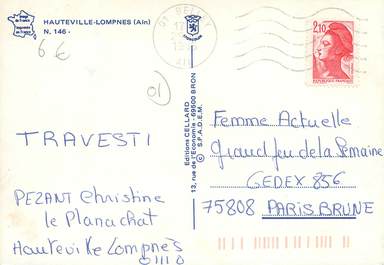 HAUTEVILLE-LOMPNES (Ain)
N. 146 -
6 €
01
01 BELLEY
2,10
REPUBLIQUE FRANÇAISE
TRAVESTI
PEZANT Christine
le Planachat
Hauteville Lompnès
01110
Editions CELLARD
13, rue de l'Economie - 69500 BRON
© S.P.A.D.E.M.
Femme Actuelle
Grand Jeu de la Semaine
CEDEX 856
75808 PARIS BRUNE